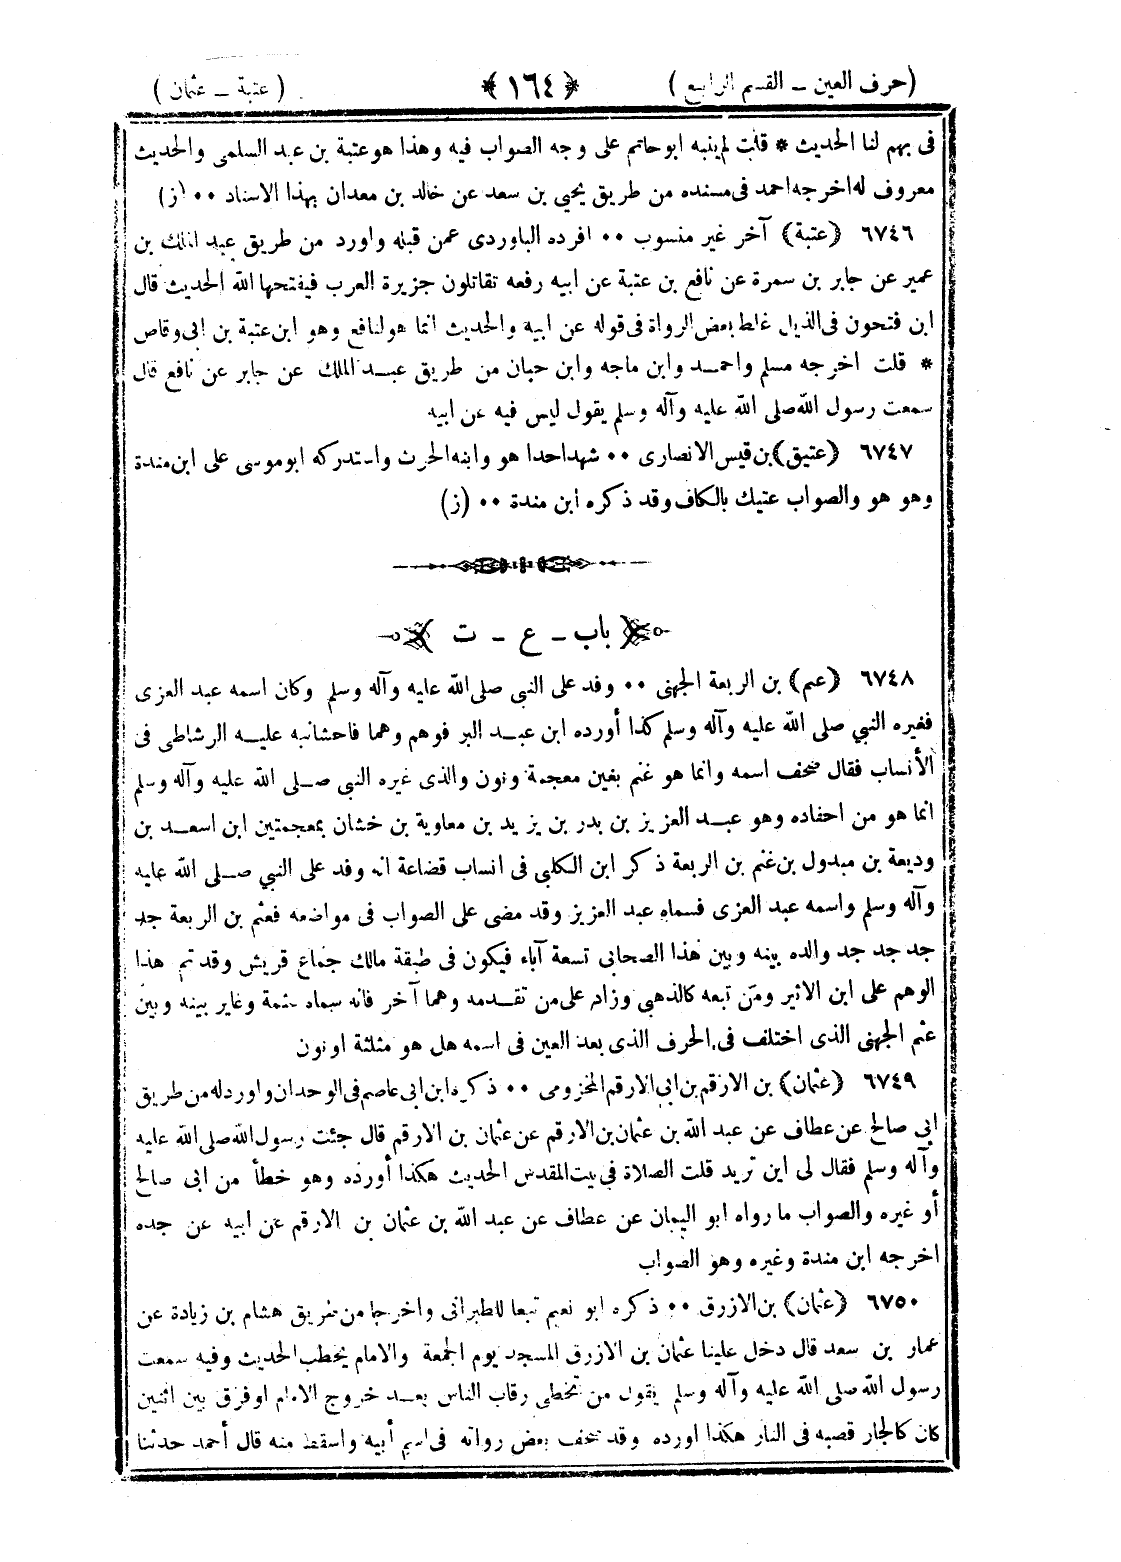 (حرف العين ـ القسم الرابع) ﴿١٦٤﴾ (عتبة ـ عثمان)
فى بهم لنا الحديث * قلت لم ينبه ابوحاتم على وجه الصواب فيه وهذا هو عتبة بن عبد السلمى والحديث
معروف له اخرجه احمد فى مسنده من طريق يحيى بن سعد عن خالد بن معدان بهذا الاسناد ٠٠ (ز)
٦٧٤٦ (عتبة) آخر غير منسوب ٠٠ افرده الباوردى عمن قبله واورد من طريق عبد الملك بن
عمير عن جابر بن سمرة عن نافع بن عتبة عن ابيه رفعه تقاتلون جزيرة العرب فيفتحها الله الحديث قال
ابن فتحون فى الذيل غلط بعض الرواة فى قوله عن ابيه والحديث انما هو لنافع وهو ابن عتبة بن ابى وقاص
* قلت اخرجه مسلم واحمد وابن ماجه وابن حبان من طريق عبد الملك عن جابر عن نافع قال
سمعت رسول الله صلى الله عليه وآله وسلم يقول ليس فيه عن ابيه
٦٧٤٧ (عتيق) بن قيس الانصارى ٠٠ شهد احدا هو وابنه الحرث واستدركه ابوموسى على ابن مندة
وهو هو والصواب عتيك بالكاف وقد ذكره ابن مندة ٠٠ (ز)
باب ـ ع ـ ت
٦٧٤٨ (عثم) بن الربعة الجهنى ٠٠ وفد على النبي صلى الله عليه وآله وسلم وكان اسمه عبد العزى
فغيره النبي صلى الله عليه وآله وسلم كذا أورده ابن عبد البر فوهم وهما فاحشا نبه عليه الرشاطى فى
الأنساب فقال صحف اسمه وانما هو غنم بغين معجمة ونون والذى غيره النبي صلى الله عليه وآله وسلم
انما هو من احفاده وهو عبد العزيز بن بدر بن يزيد بن معاوية بن خشان بمعجمتين ابن اسعد بن
وديعة بن مبدول بن غنم بن الربعة ذكر ابن الكلبى فى انساب قضاعة انه وفد على النبي صلى الله عليه
وآله وسلم واسمه عبد العزى فسماه عبد العزيز وقد مضى على الصواب فى مواضعه فعثم بن الربعة جد
جد جد جد والده بينه وبين هذا الصحابى تسعة آباء فيكون فى طبقة مالك جماع قريش وقد تم هذا
الوهم على ابن الاثير ومن تبعه كالذهبى وزاد على من تقدمه وهما آخر فانه سماه عثمة وغاير بينه وبين
عثم الجهنى الذى اختلف فى الحرف الذى بعد العين فى اسمه هل هو مثلثة او نون
٦٧٤٩ (عثمان) بن الارقم بن ابى الارقم المخزومى ٠٠ ذكره ابن ابى عاصم فى الوحدان واورد له من طريق
ابى صالح عن عطاف عن عبد الله بن عثمان بن الارقم عن عثمان بن الارقم قال جئت رسول الله صلى الله عليه
وآله وسلم فقال لى اين تريد قلت الصلاة فى بيت المقدس الحديث هكذا أورده وهو خطأ من ابى صالح
أو غيره والصواب ما رواه ابو اليمان عن عطاف عن عبد الله بن عثمان بن الارقم عن ابيه عن جده
اخرجه ابن مندة وغيره وهو الصواب
٦٧٥٠ (عثمان) بن الازرق ٠٠ ذكره ابو نعيم تبعا للطبرانى واخرجا من طريق هشام بن زيادة عن
عمار بن سعد قال دخل علينا عثمان بن الازرق المسجد يوم الجمعة والامام يخطب الحديث وفيه سمعت
رسول الله صلى الله عليه وآله وسلم يقول من تخطى رقاب الناس بعد خروج الامام او فرق بين اثنين
كان كالجار قصبه فى النار هكذا اورده وقد صحف بعض رواته فى اسم أبيه واسقط منه قال أحمد حدثنا